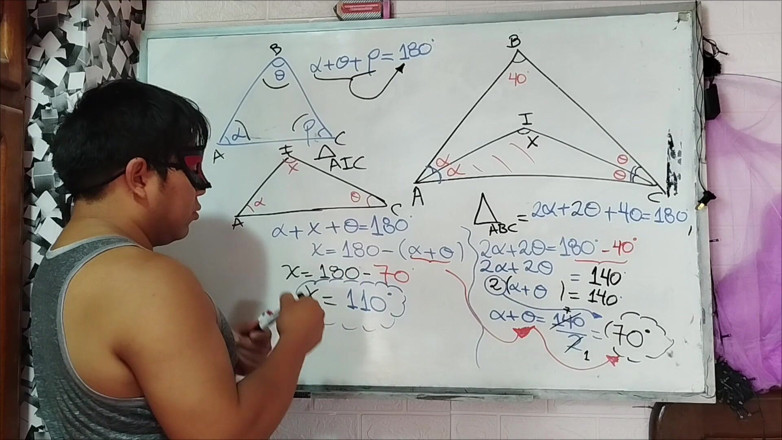 B
θ
α
ρ
A
C
α+θ+ρ=180°
I
x
α
θ
A
C
△AIC
α+x+θ=180°
x=180-(α+θ)
x=180-70
x=110°
B
40°
I
x
α
α
θ
θ
A
C
△ABC=2α+2θ+40=180°
2α+2θ=180°-40°
2α+2θ=140°
2(α+θ)=140°
α+θ=140/2=70°
1